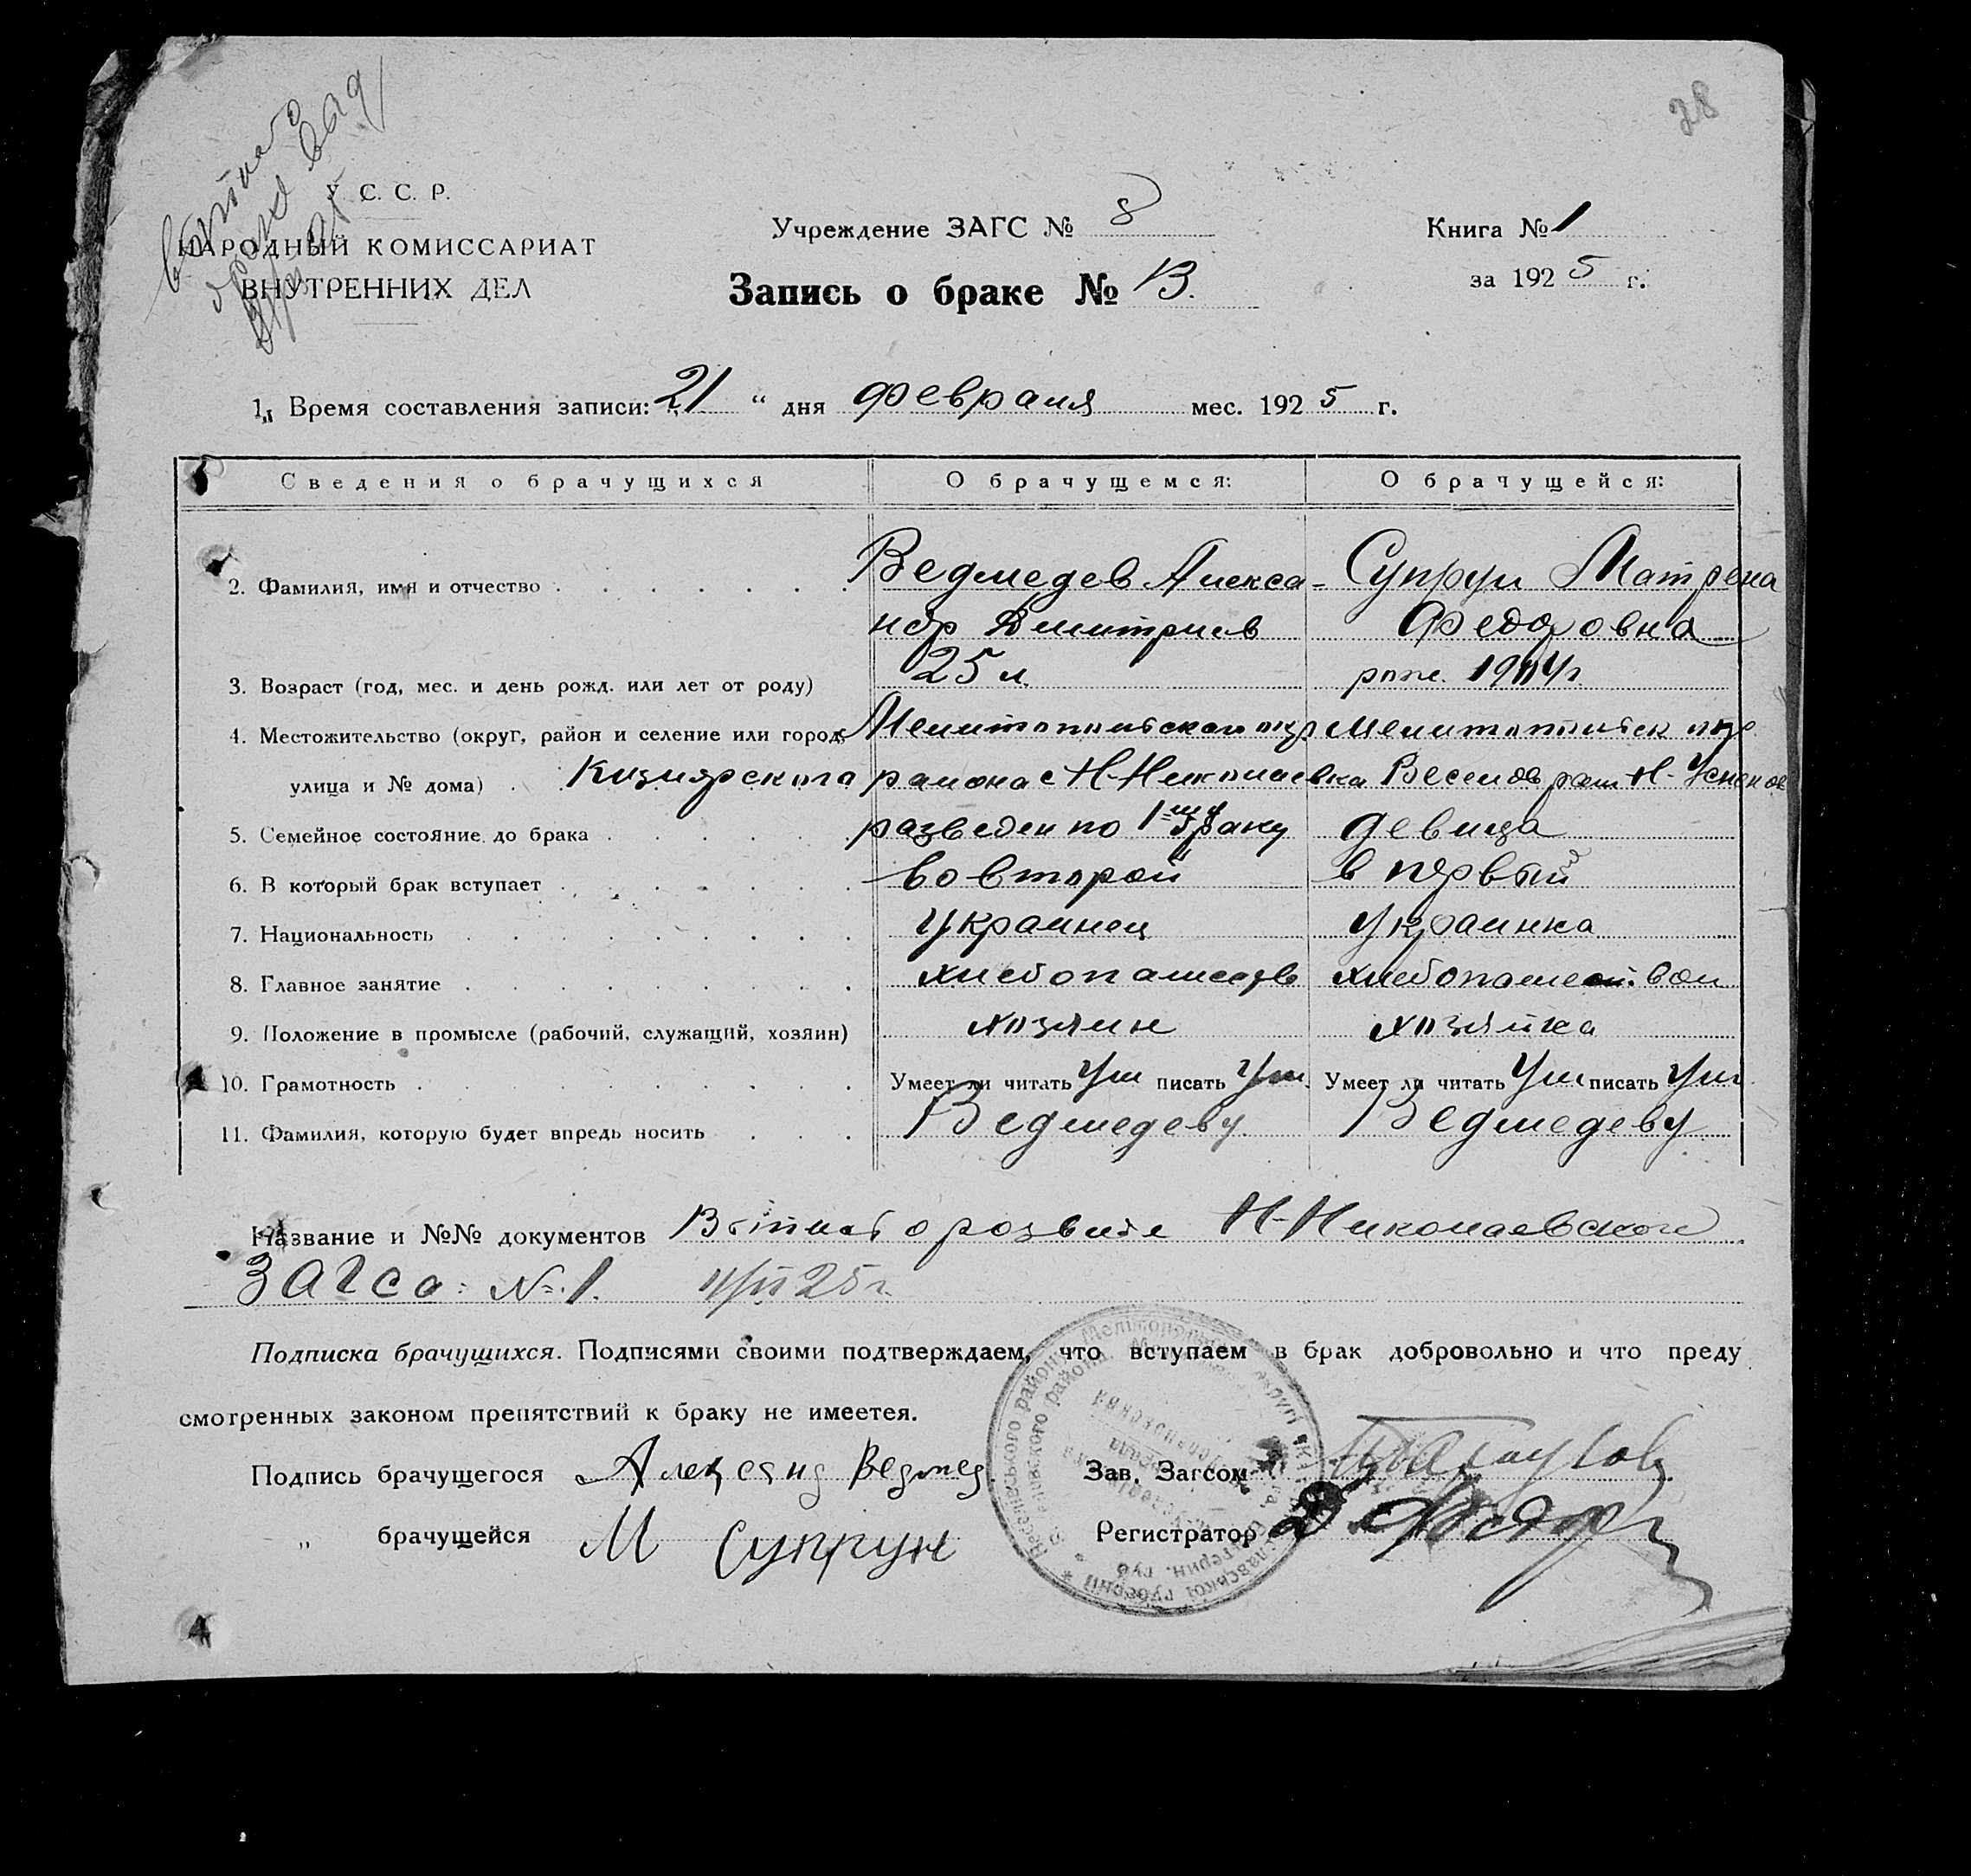 28
У. С. С. Р.
НАРОДНЫЙ КОМИССАРИАТ
ВНУТРЕННИХ ДЕЛ
Учреждение ЗАГС № 8
Книга № 1
за 1925 г.
Запись о браке № 13.
1. Время составления записи: „21“ дня февраля мес. 1925 г.
Сведения о брачущихся О брачущемся: О брачущейся:
2. Фамилия, имя и отчество Ведмедев Алекса- Супрун Матрена
ндр Дмитриев Федоровна
3. Возраст (год, мес. и день рожд. или лет от роду) 25 л. рож. 1904 г.
4. Местожительство (округ, район и селение или город, Мелитопольского окр Мелитопольск окр
улица и № дома) Кизиярского района с Н-Николаевка Веселов рай Н-Успенов
5. Семейное состояние до брака разведен по 1му браку девица
6. В который брак вступает во второй в первый
7. Национальность Украинец Украинка
8. Главное занятие хлебопашеств хлебопашеством
9. Положение в промысле (рабочий, служащий, хозяин) хозяин хозяйка
10. Грамотность Умеет ли читать Ум писать Ум. Умеет ли читать Ум писать Ум
11. Фамилия, которую будет впредь носить Ведмедеву Ведмедеву
Название и №№ документов о розводе Н-Николаевского
ЗАГСа: №1. 25 г.
Подписка брачущихся. Подписями своими подтверждаем, что вступаем в брак добровольно и что преду
смотренных законом препятствий к браку не имеется.
Подпись брачущегося Александ Ведмед.
Зав. Загсом
„ брачущейся М Супрун
Регистратор